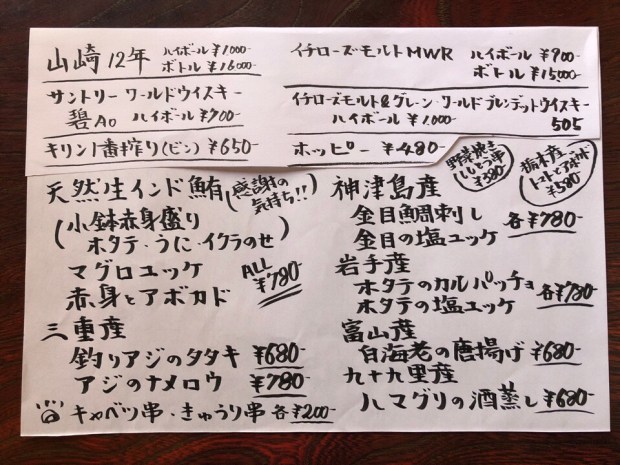 山崎12年 ハイボール ¥1000-
ボトル ¥16000-
サントリー ワールドウイスキー
碧Ao ハイボール ¥700-
キリン一番搾り(ビン) ¥650-
イチローズモルトMWR ハイボール ¥900-
ボトル ¥15,000-
イチローズモルト&グレーン・ワールドブレンデットウイスキー
ハイボール ¥1,000- 505
ホッピー ¥480-
野菜焼き
ししとう串
¥380-
栃木産
トマトとアボカド
¥580-
天然生インド鮪(感謝の
気持ち!!)
(小鉢赤身盛り
ホタテ・うに・イクラのせ)
マグロユッケ
赤身とアボカド
ALL
¥780-
三重産
釣りアジのタタキ ¥680-
アジのナメロウ ¥780-
キャベツ串・きゅうり串 各¥200-
神津島産
金目鯛刺し
金目の塩ユッケ 各¥780-
岩手産
ホタテのカルパッチョ
ホタテの塩ユッケ 各¥780-
富山産
白海老の唐揚げ ¥680-
九十九里産
ハマグリの酒蒸し ¥680-